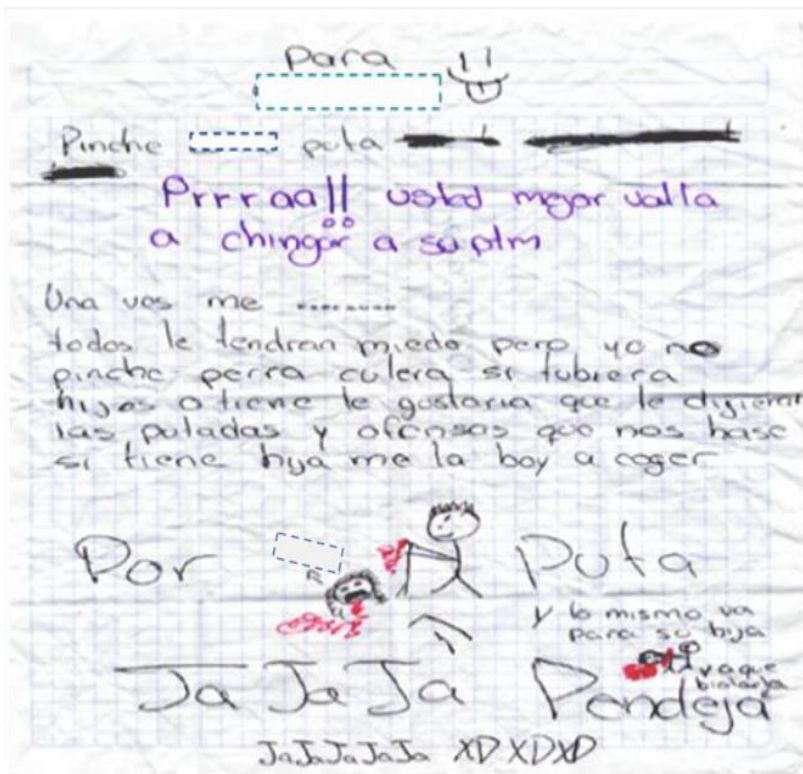 Para
Pinche puta
Prrraa!! usted megor valla
a chingar a su ptm
Una ves me ........
todos le tendran miedo pero yo no
pinche perra culera si tubiera
hijos o tiene le gustaria que le digieran
las putadas y ofensas que nos hase
si tiene hija me la boy a coger
Por Puta
y lo mismo va
para su hija
Ja Ja Ja Pendeja
JaJaJaJaJa XD XD XD